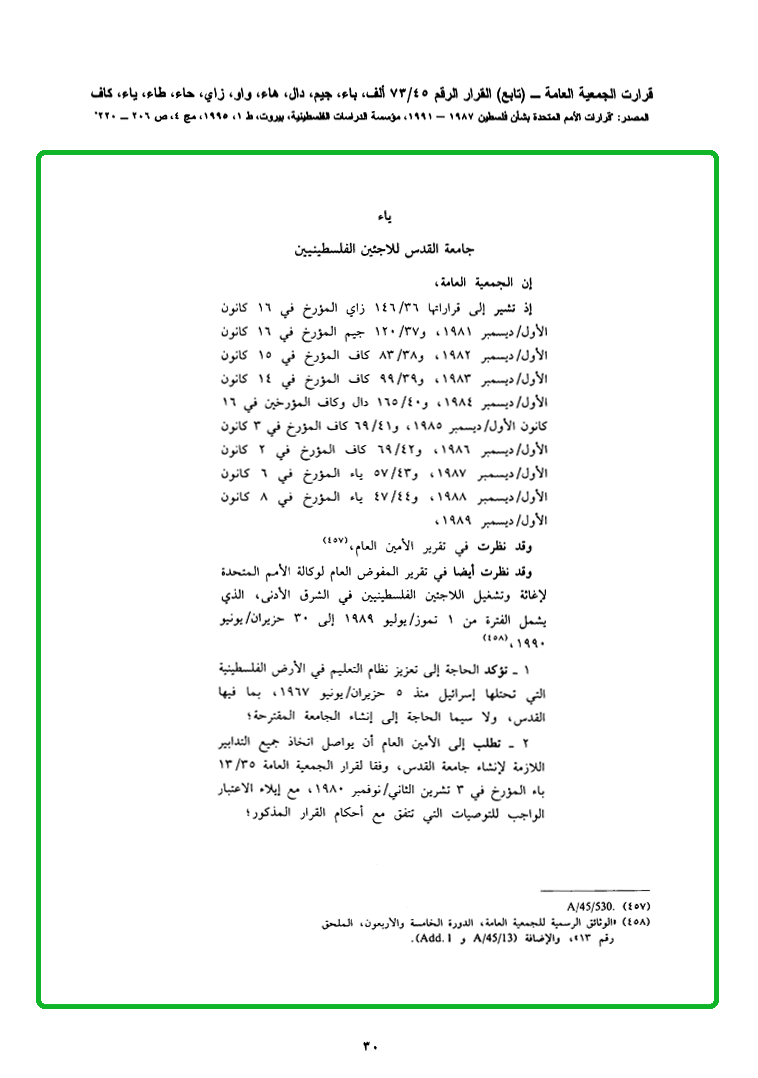 قرارت الجمعية العامة ــ (تابع) القرار الرقم ٧٣/٤٥ ألف، باء، جيم، دال، هاء، واو، زاي، حاء، طاء، ياء، كاف
المصدر: "قرارات الأمم المتحدة بشأن فلسطين ١٩٨٧ – ١٩٩١، مؤسسة الدراسات الفلسطينية، بيروت، ط ١، ١٩٩٥، مج ٤، ص ٢٠٦ ــ ٢٢٠"
ياء
جامعة القدس للاجئين الفلسطينيين
إن الجمعية العامة،
إذ تشير إلى قراراتها ١٤٦/٣٦ زاي المؤرخ في ١٦ كانون
الأول/ديسمبر ١٩٨١، و١٢٠/٣٧ جيم المؤرخ في ١٦ كانون
الأول/ديسمبر ١٩٨٢، و٨٣/٣٨ كاف المؤرخ في ١٥ كانون
الأول/ديسمبر ١٩٨٣، و٩٩/٣٩ كاف المؤرخ في ١٤ كانون
الأول/ديسمبر ١٩٨٤، و١٦٥/٤٠ دال وكاف المؤرخين في ١٦
كانون الأول/ديسمبر ١٩٨٥، و٦٩/٤١ كاف المؤرخ في ٣ كانون
الأول/ديسمبر ١٩٨٦، و٦٩/٤٢ كاف المؤرخ في ٢ كانون
الأول/ديسمبر ١٩٨٧، و٥٧/٤٣ ياء المؤرخ في ٦ كانون
الأول/ديسمبر ١٩٨٨، و٤٧/٤٤ ياء المؤرخ في ٨ كانون
الأول/ديسمبر ١٩٨٩،
وقد نظرت في تقرير الأمين العام،(٤٥٧)
وقد نظرت أيضا في تقرير المفوض العام لوكالة الأمم المتحدة
لإغاثة وتشغيل اللاجئين الفلسطينيين في الشرق الأدنى، الذي
يشمل الفترة من ١ تموز/يوليو ١٩٨٩ إلى ٣٠ حزيران/يونيو
١٩٩٠،(٤٥٨)
١ ــ تؤكد الحاجة إلى تعزيز نظام التعليم في الأرض الفلسطينية
التي تحتلها إسرائيل منذ ٥ حزيران/يونيو ١٩٦٧، بما فيها
القدس، ولا سيما الحاجة إلى إنشاء الجامعة المقترحة؛
٢ ــ تطلب إلى الأمين العام أن يواصل اتخاذ جميع التدابير
اللازمة لإنشاء جامعة القدس، وفقا لقرار الجمعية العامة ١٣/٣٥
باء المؤرخ في ٣ تشرين الثاني/نوفمبر ١٩٨٠، مع إيلاء الاعتبار
الواجب للتوصيات التي تتفق مع أحكام القرار المذكور؛
(٤٥٧) A/45/530.
(٤٥٨) «الوثائق الرسمية للجمعية العامة، الدورة الخامسة والأربعون، الملحق
رقم ١٣»، والإضافة (A/45/13 و Add. 1).
٣٠